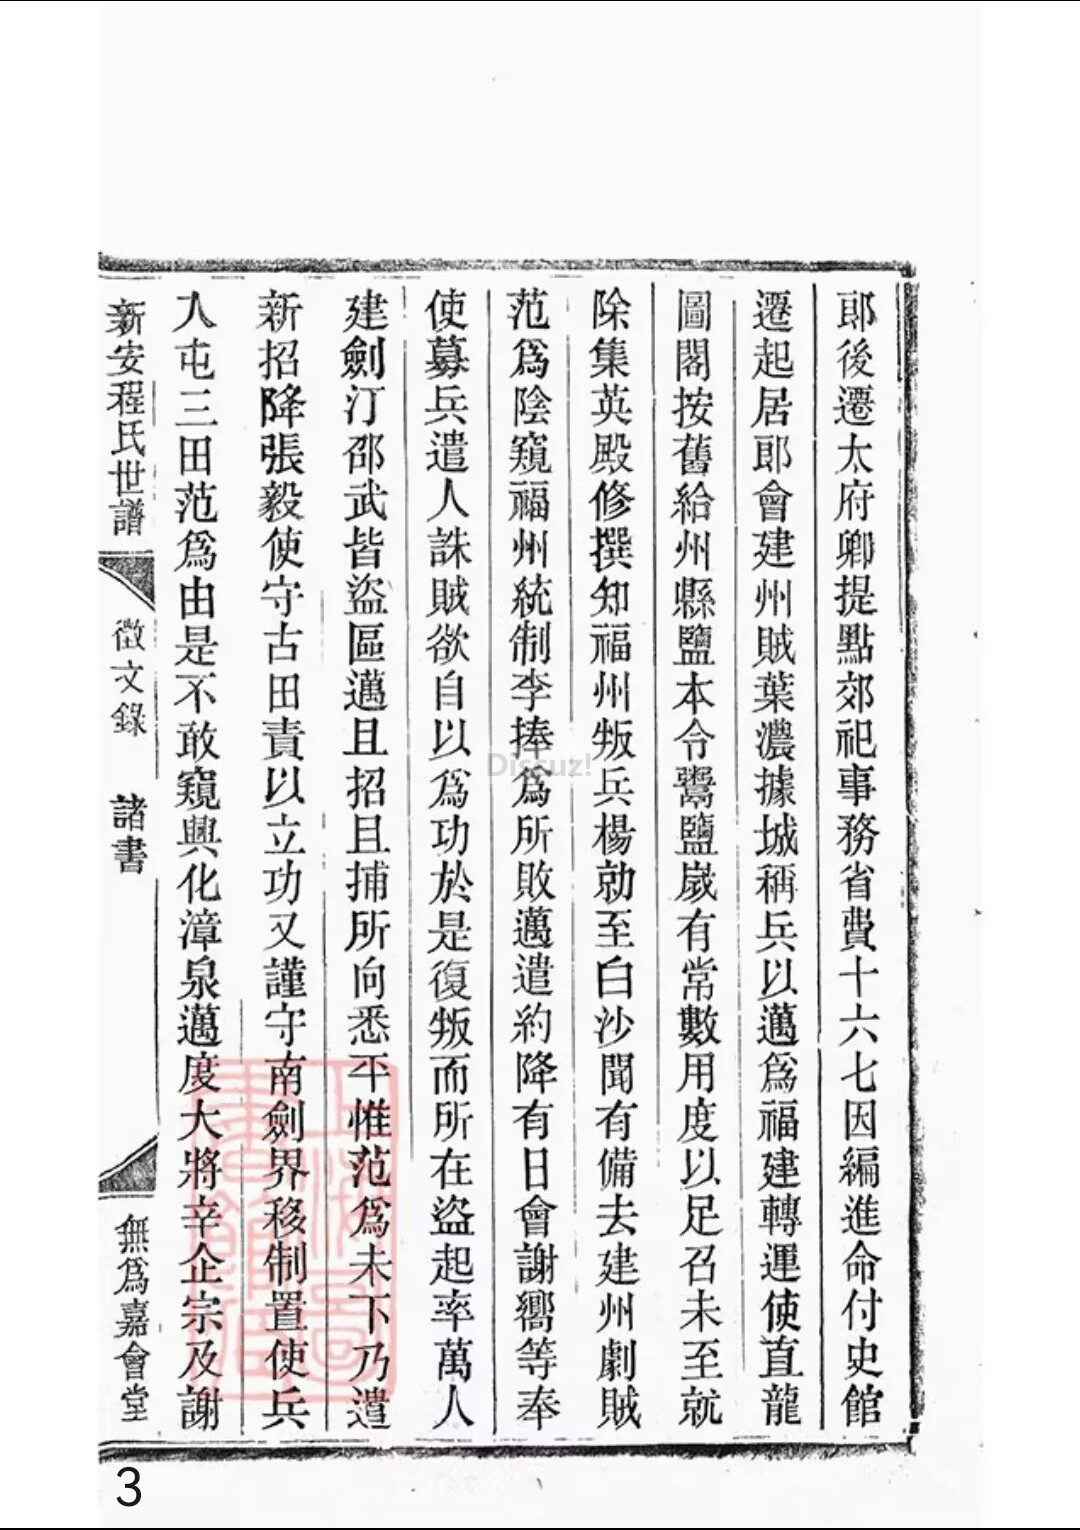 郎後遷太府卿提點郊祀事務省費十六七因編進命付史館
遷起居郎會建州賊葉濃據城稱兵以邁爲福建轉運使直龍
圖閣按舊給州縣鹽本令鬻鹽歲有常數用度以足召未至就
除集英殿修撰知福州叛兵楊勍至白沙聞有備去建州劇賊
范爲陰窺福州統制李捧爲所敗邁遣約降有日會謝嚮等奉
使募兵遣人誅賊欲自以爲功於是復叛而所在盜起率萬人
建劍汀邵武皆盜區邁且招且捕所向悉平惟范爲未下乃遣
新招降張毅使守古田責以立功又謹守南劍界移制置使兵
人屯三田范爲由是不敢窺興化漳泉邁度大將辛企宗及謝
新安程氏世譜
徵文錄 諸書
無爲嘉會堂
上海圖書館藏
Discuz!
3